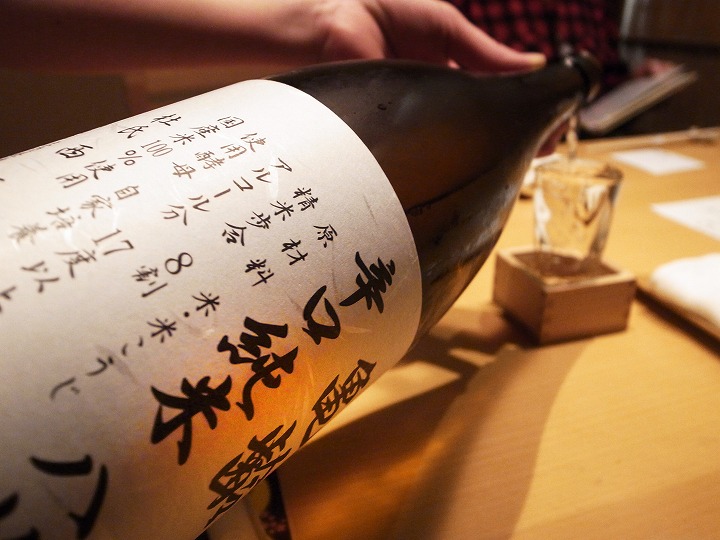 龜齡 八
辛口純米
原材料 米・米こうじ
精米歩合 8割
アルコール分 17度以上
使用酵母 自家培養
国産米100%使用
杜氏 西